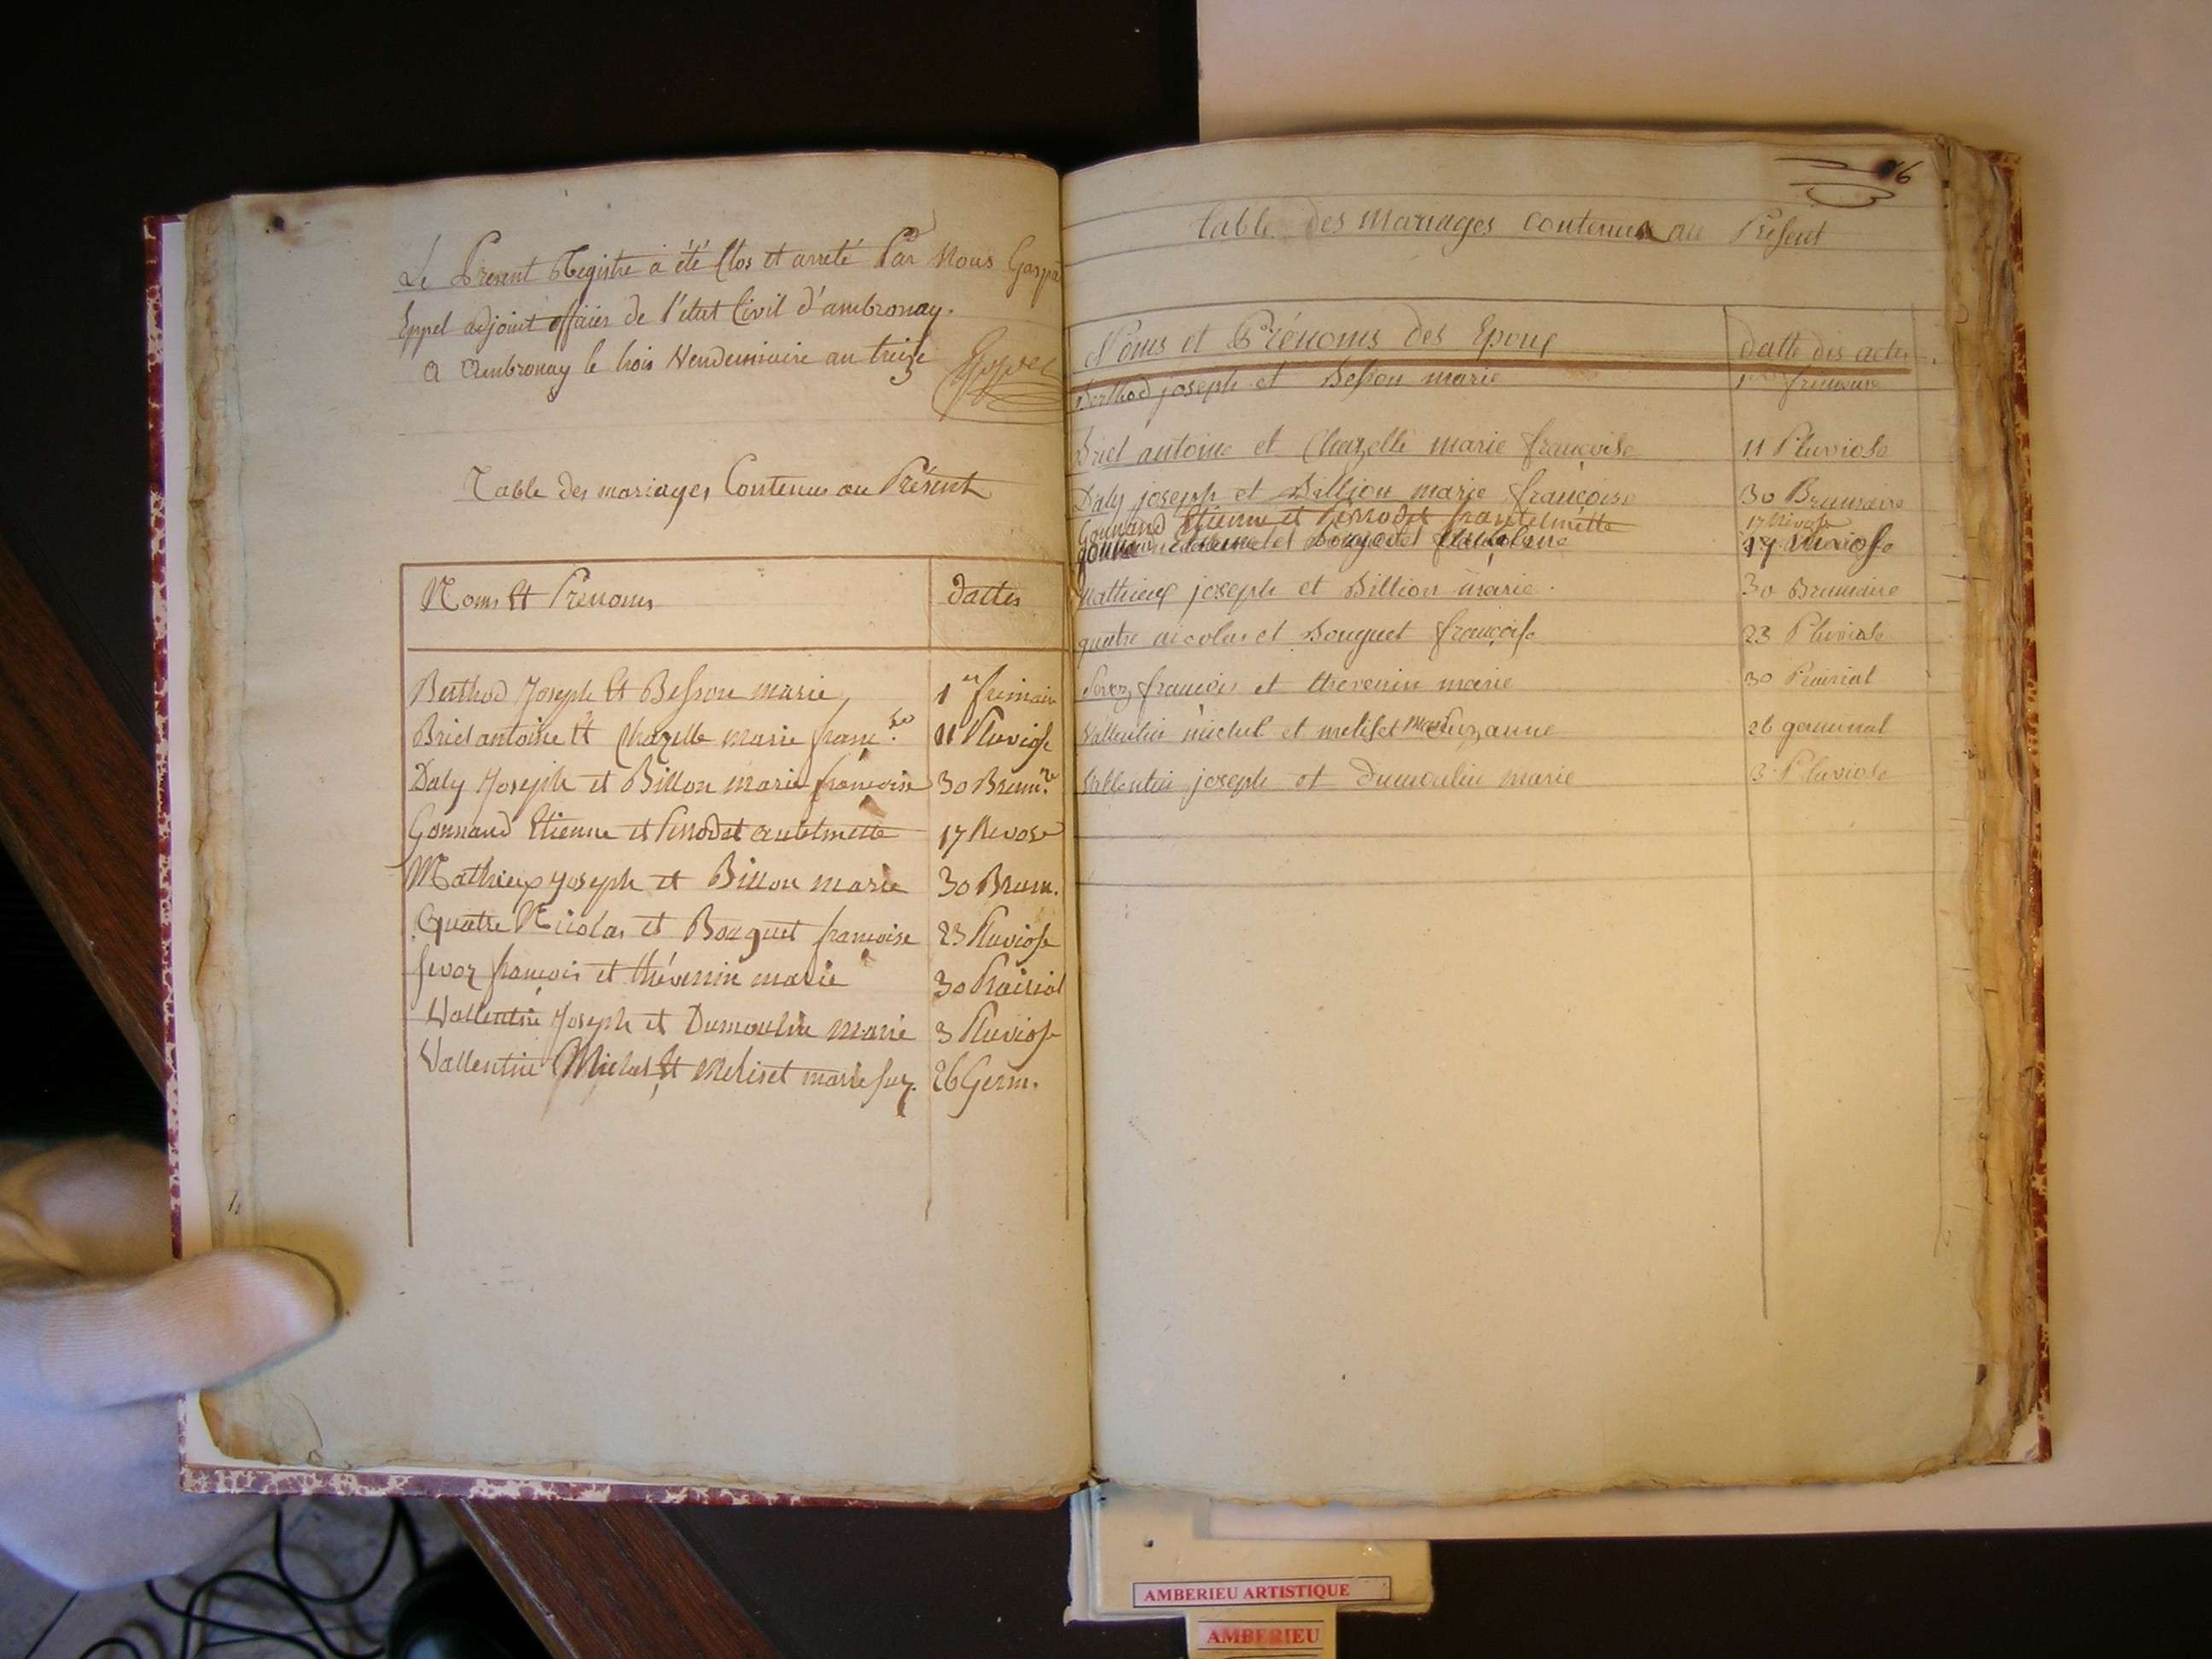 Le Présent Registre a été Clos et arreté Par Nous Gaspa
Eppel adjoint officier de l'état Civil d'ambronay.
a Ambronay le trois Vendemiaire an treize
Eppel
Table des mariages Contenus au Présent
Noms et Prenoms
dattes
Berthod Joseph et Besson marie
1er frimaire
Briel antoine et Chazelle marie franc.se
11 Pluviose
Daly Joseph et Billon marie françoise
30 Brum.re
Gonnand Etienne et Perrodet antelmette
17 Nivose
Mathieux Joseph et Billon marie
30 Brum.
Quatre Nicolas et Bouquet françoise
23 Pluviose
Sevoz françois et thévenin marie
30 Prairial
Vallentin Joseph et Dumoulin marie
3 Pluviose
Vallentin Michel et Meliset marie Suz.
26 Germ.
6
table des mariages contenus au Présent
Noms et Prénoms des Epoux
datte des actes
Berthod joseph et Besson marie
1er frimaire
Briel antoine et Chazelle marie françoise
11 Pluviose
Daly joseph et Billion marie françoise
30 Brumaire
Gonnand Etienne et Perrodet antelmette
17 Nivose
17 Nivose
Mathieux joseph et Billion marie.
30 Brumaire
quatre nicolas et Bouquet françoise
23 Pluviose
Sevoz françois et thevenin marie
30 Prairial
Vallentin michel et meliset marie Suzanne
26 germinal
Vallentin joseph et dumoulin marie
3 Pluviose
AMBERIEU ARTISTIQUE
AMBERIEU